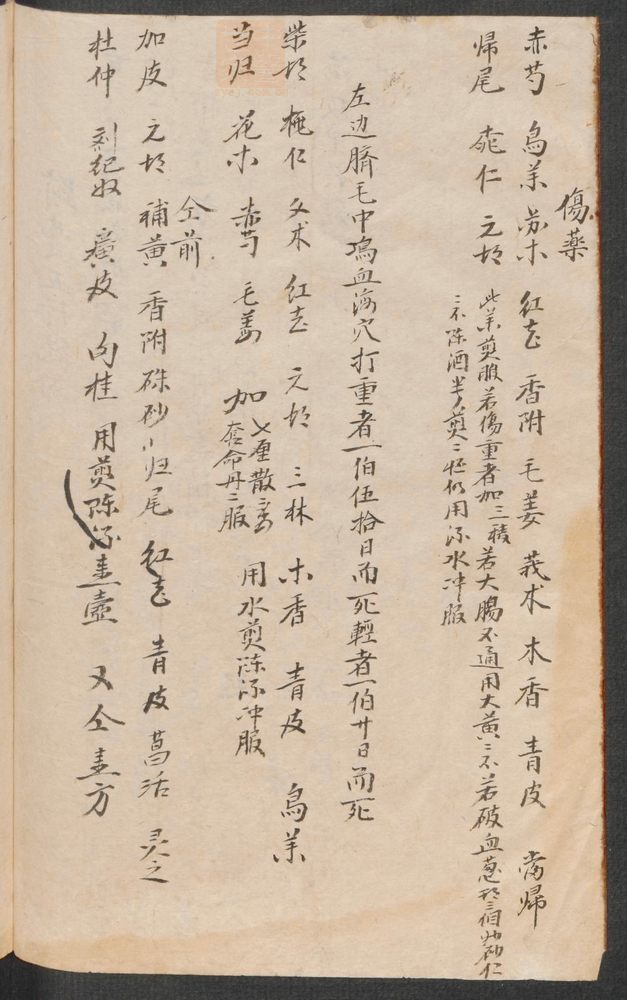 傷藥
赤芍 烏羊 苏木 红花 香附 毛姜 莪术 木香 青皮 當帰
帰尾 桃仁 元胡
此羊煎服若傷重者加三稜若大腸不通用大黄二不若破血葱 砂仁
三不陈酒半 煎 仍用 水冲服
左边臍毛中 血海穴打重者一伯伍拾日而死輕者一伯廿日而死
柴胡 桃仁 文术 红花 元胡 三林 木香 青皮 烏羊
当归 花木 赤芍 毛姜 加 七厘散 奪命丹二服 用水煎陈 冲服
仝前
加皮 元胡 補黄 香附 硃砂 归尾 红花 青皮 活 灵之
杜仲 刘纪奴 廣皮 向桂 用煎陈 壶 又仝 方